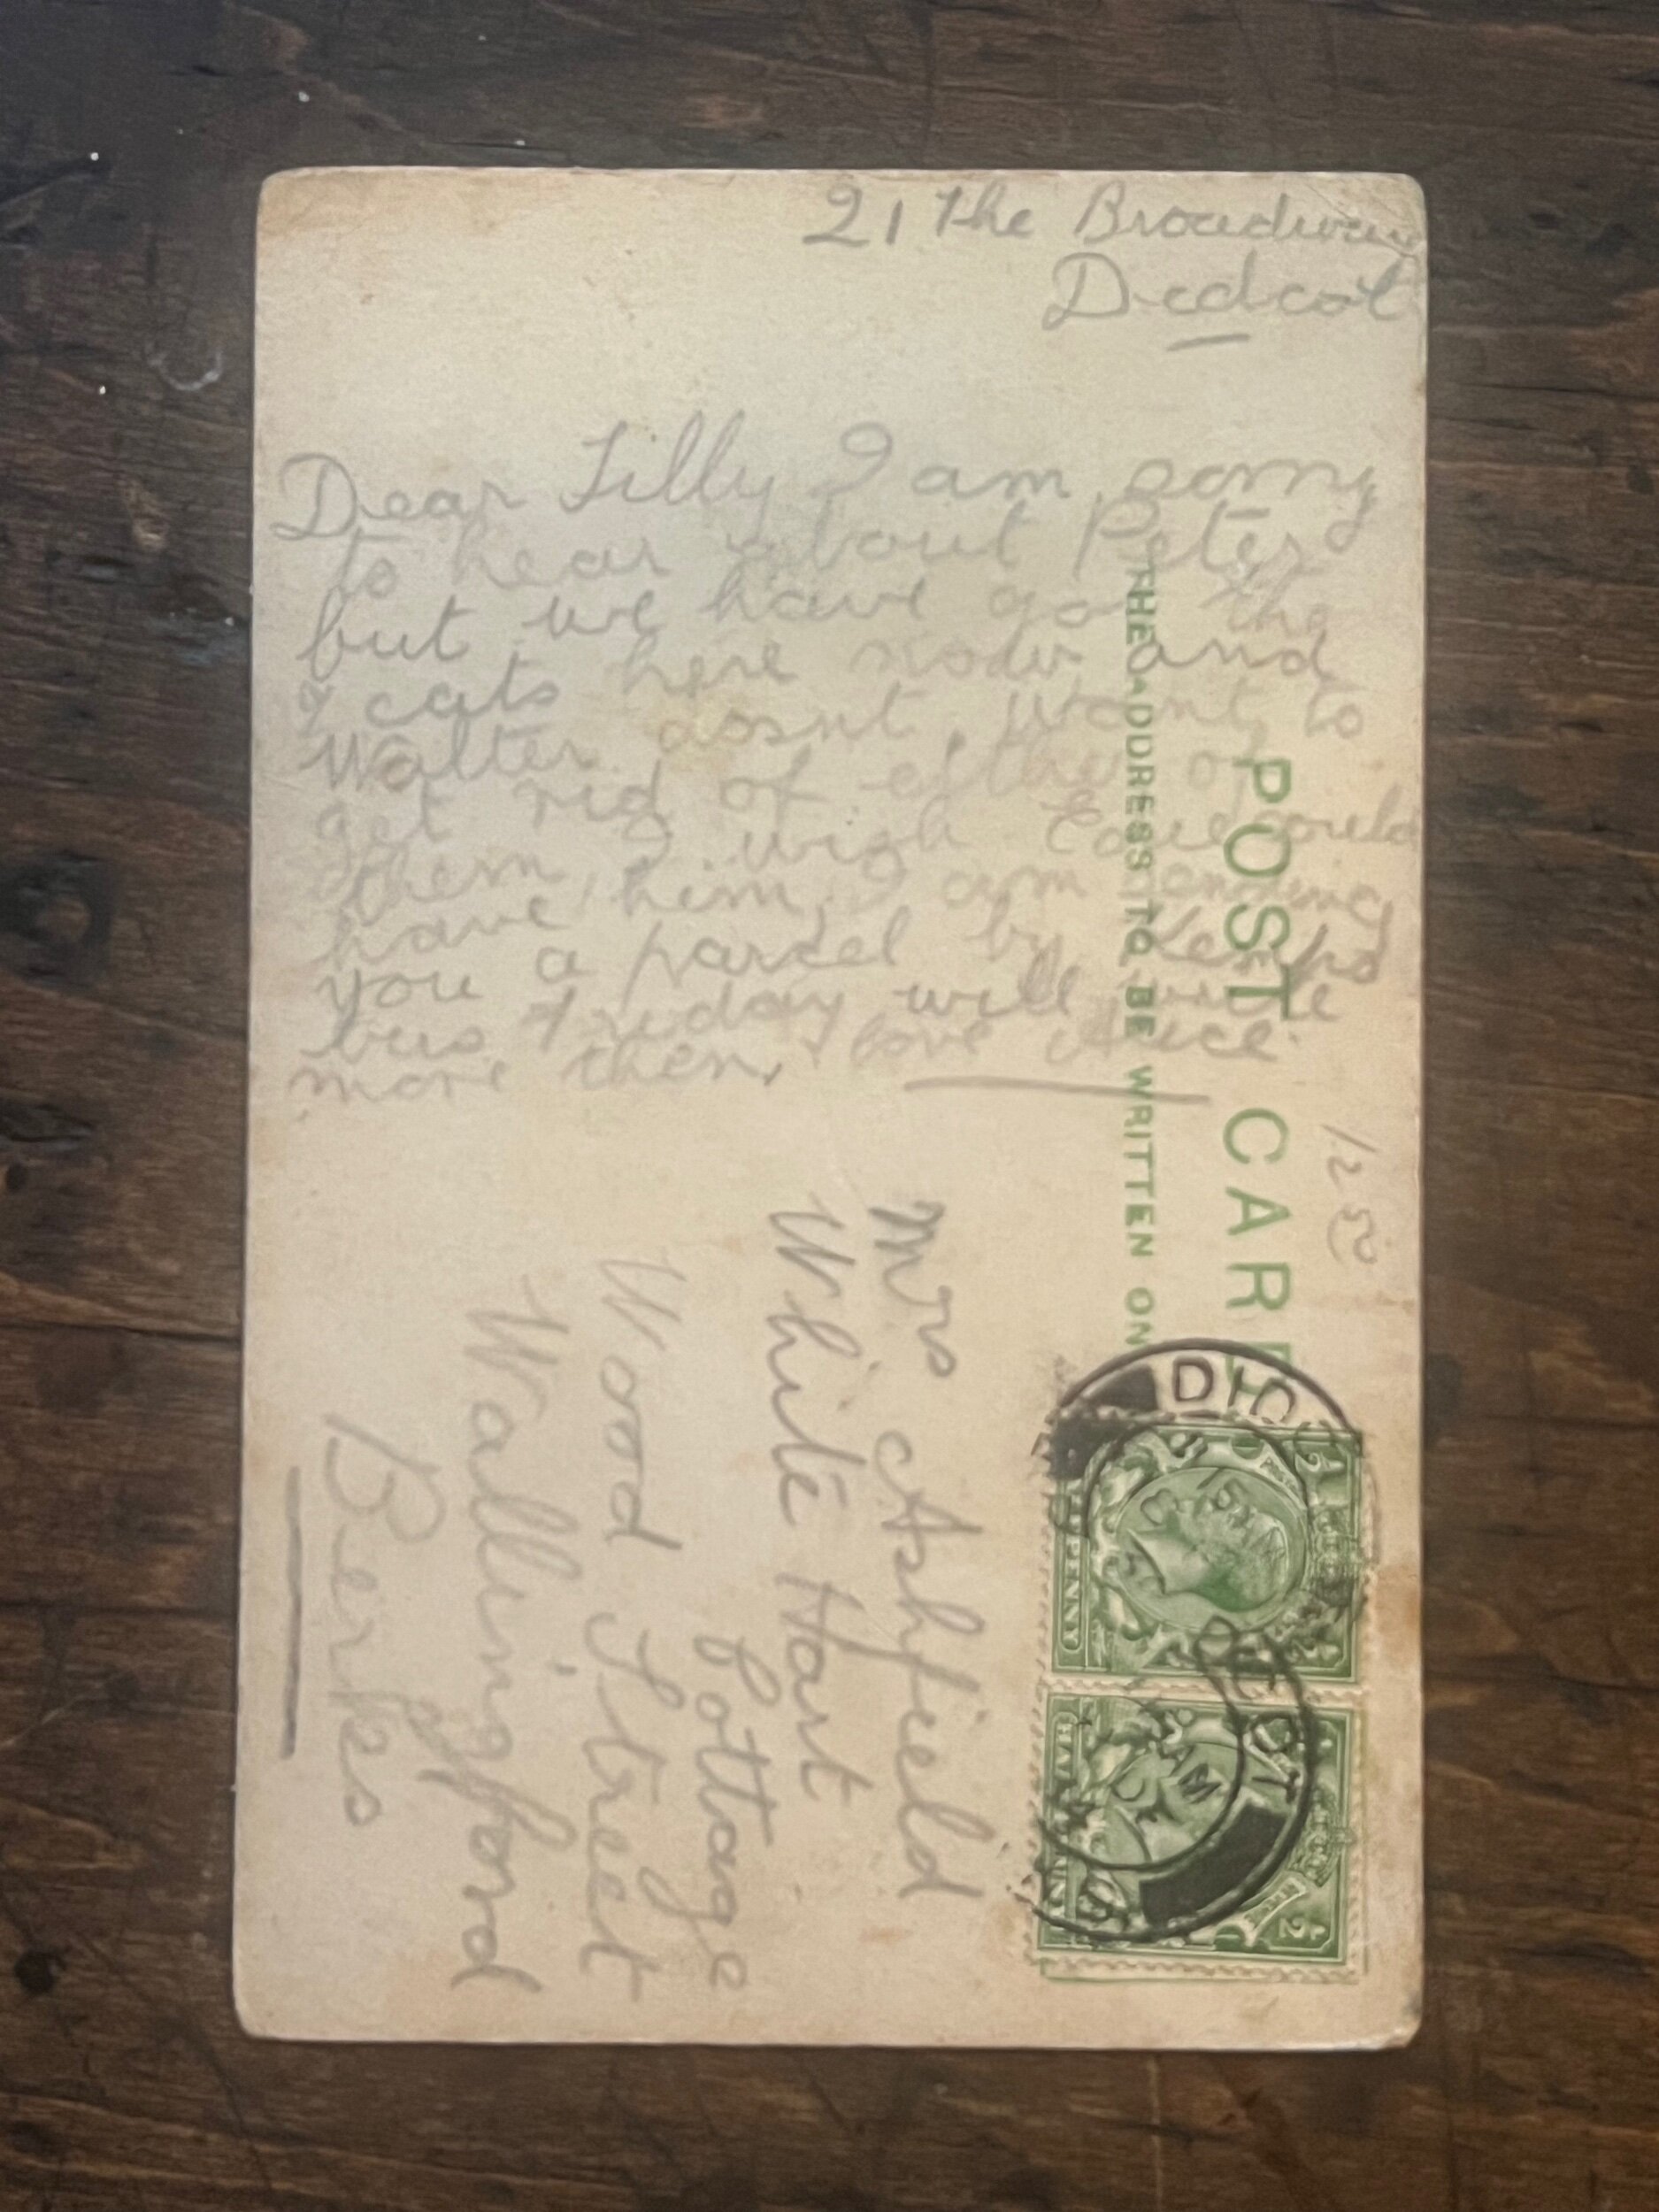 21 The Broadway
Didcot
Dear Lilly I am sorry
to hear about Peter
but we have got the
2 cats here now and
Walter dosnt want to
get rid of either of
them, I wish Edie could
have him, I am sending
you a parcel by
bus Friday will write
more then, love Alice
POST CARD
THE ADDRESS TO BE WRITTEN ON
1250
Mrs Ashfield
White Hart
Cottage
Wood Street
Wallingford
Berks
HALFPENNY
HALFPENNY
DIDCOT
AM